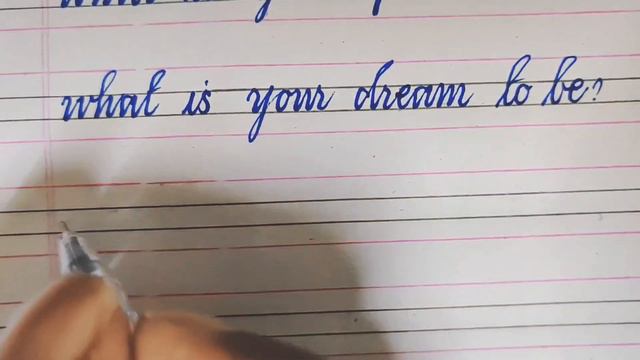 what is your dream to be?